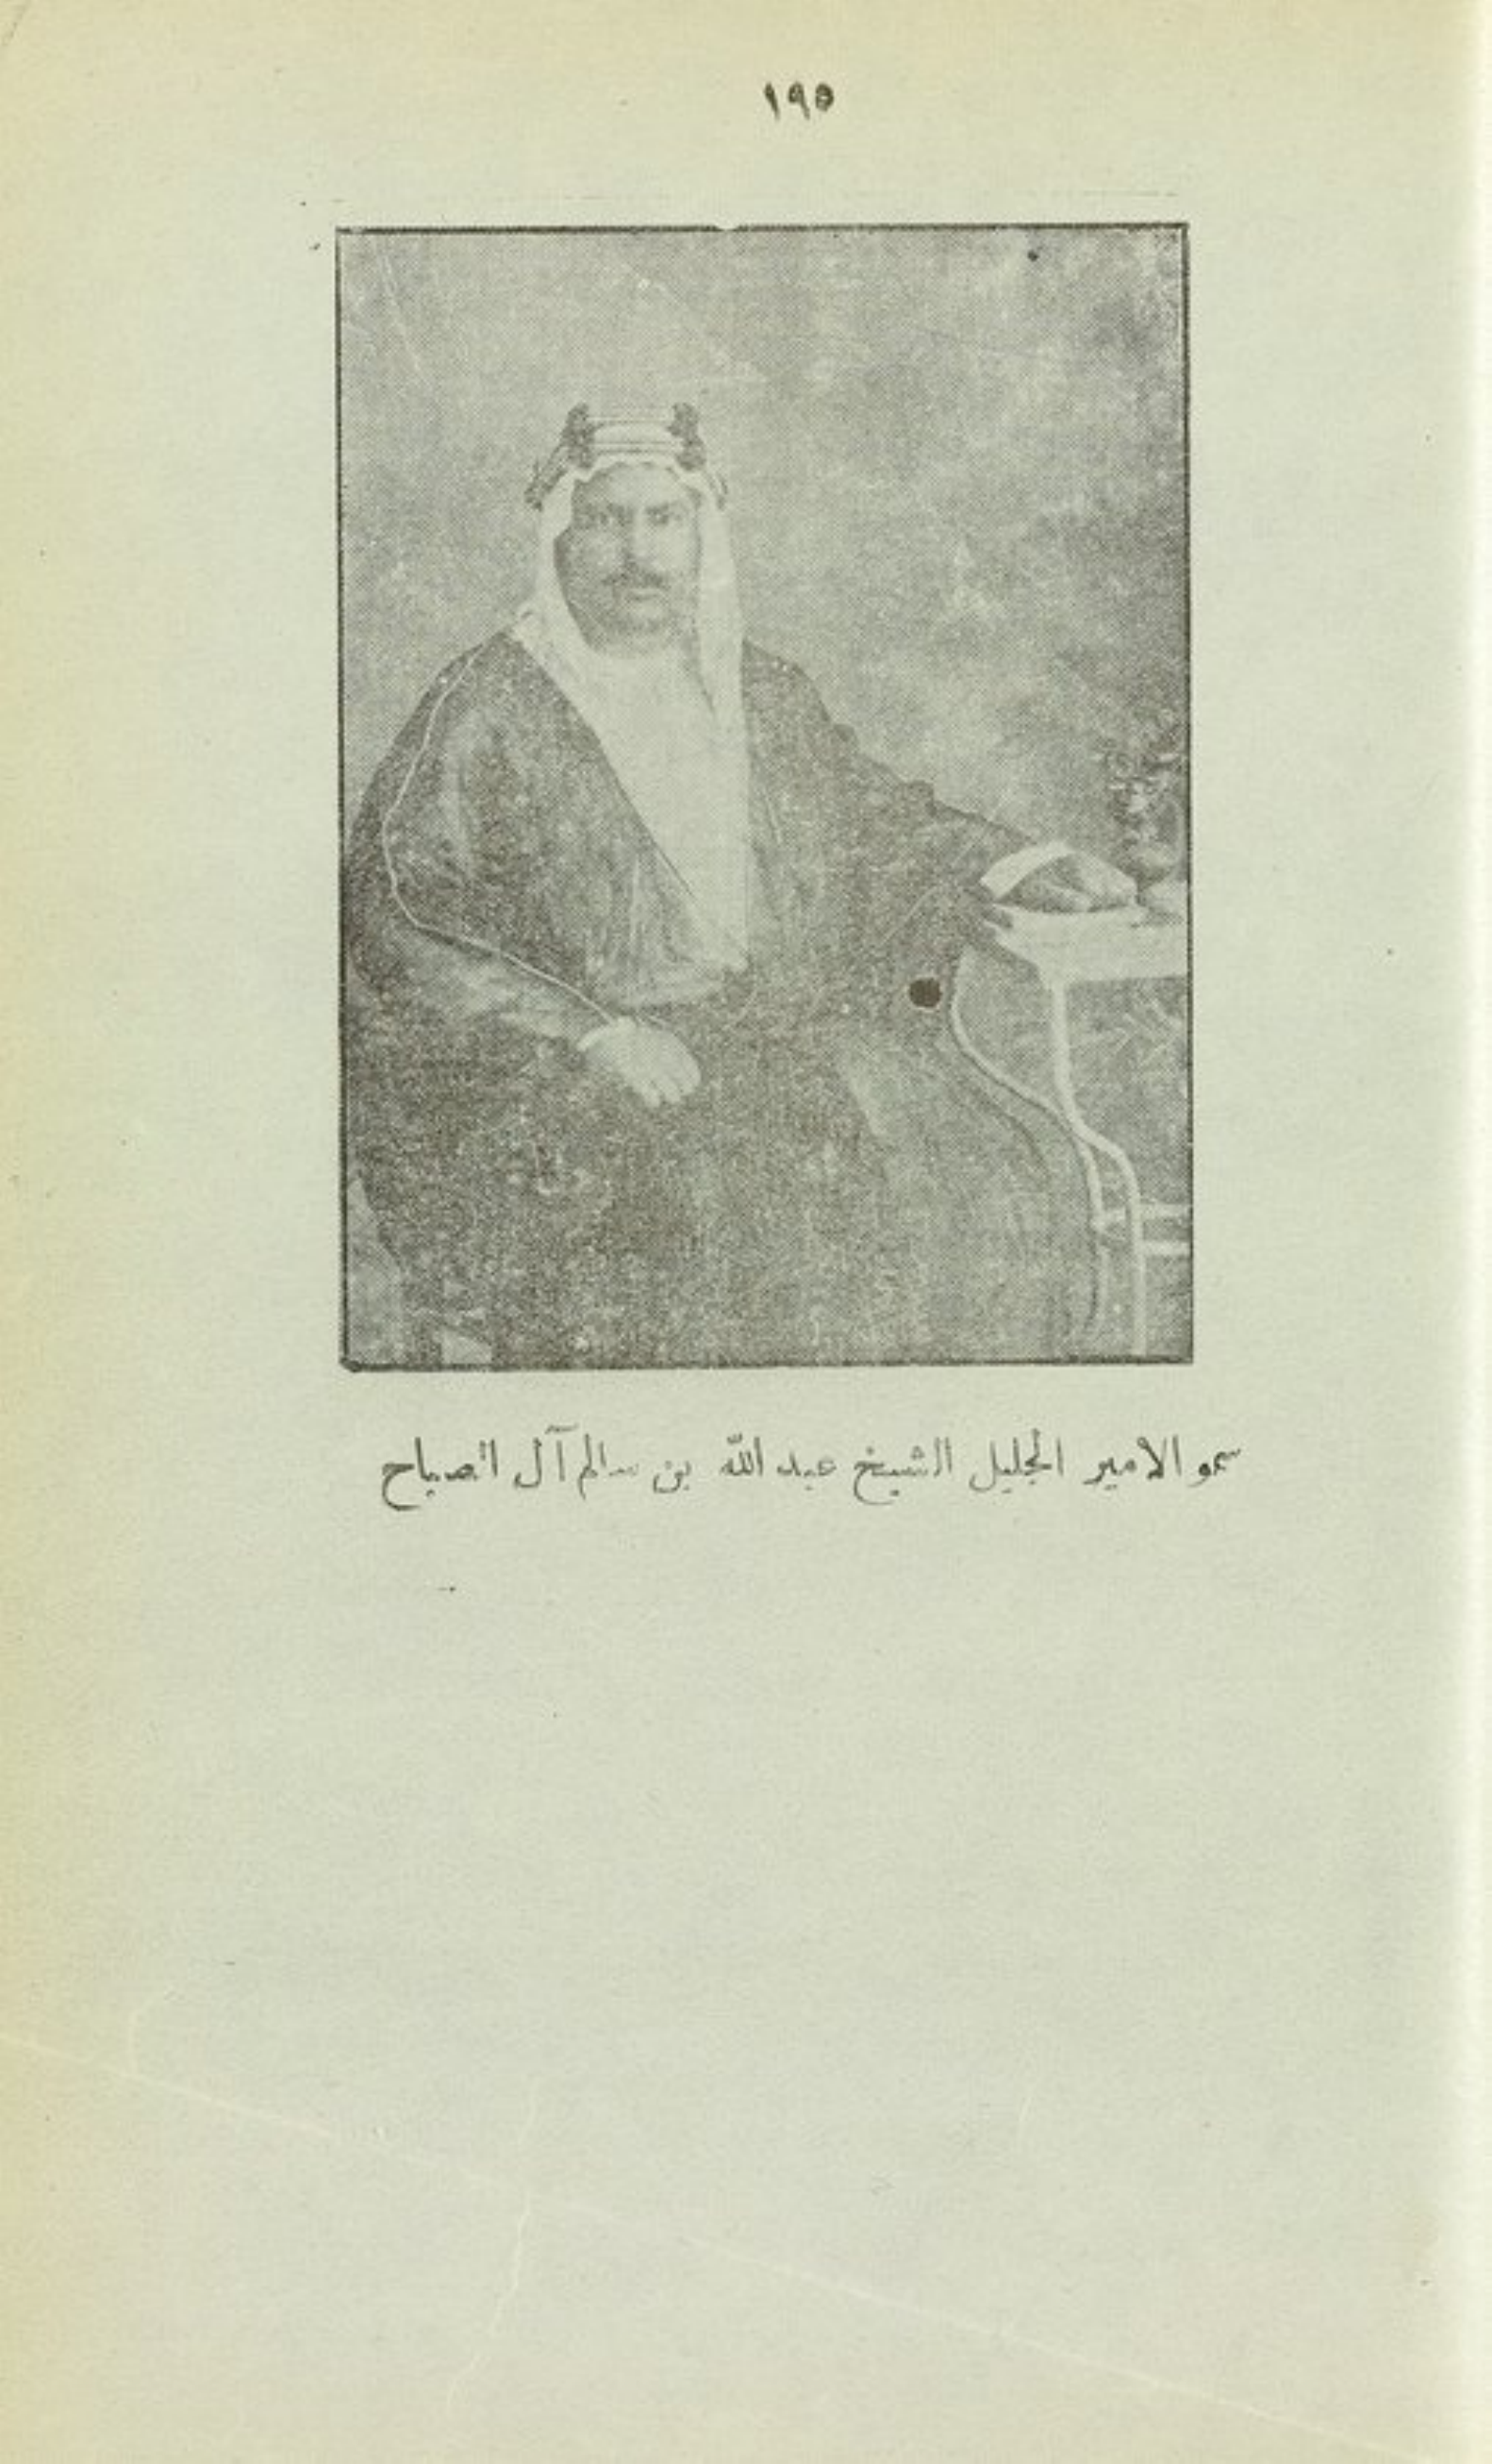 ١٩٥
سمو الامير الجليل الشيخ عبد الله بن سالم آل الصباح